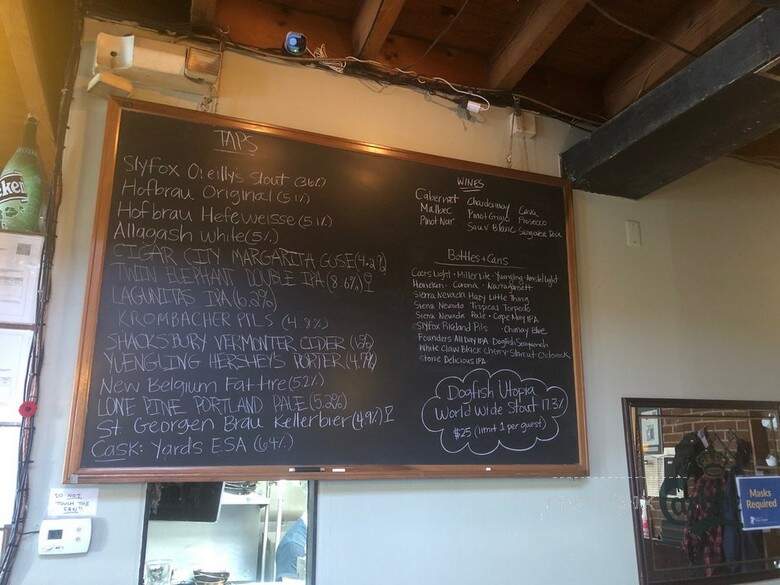 TAPS
Slyfox O'reilly's Stout (3.6%)
Hofbrau Original (5.1%)
Hofbrau Hefeweisse (5.1%)
Allagash White (5%)
CIGAR CITY MARGARITA GOSE (4.2%)
TWIN ELEPHANT DOUBLE IPA (8.6%)
LAGUNITAS IPA (6.2%)
KROMBACHER PILS (4.8%)
SHACKSBURY VERMONTER CIDER
YUENGLING HERSHEY'S PORTER (4.7%)
New Belgium Fat tire (5.2%)
LONE PINE PORTLAND PALE (5.2%)
St Georgen Brau Kellerbier (4.9%)
Cask: Yards ESA (6.4%)
WINES
Cabernet Chardonnay Cava
Malbec Pinot Grigio Prosecco
Pinot Noir Sauv Blanc
Bottles + Cans
Coors Light · Miller Lite · Yuengling · Amstel Light
Heineken · Corona · Narragansett
Sierra Nevada Hazy Little Thing
Sierra Nevada Tropical Torpedo
Sierra Nevada Pale · Cape May IPA
Slyfox Pikeland Pils · Chimay Blue
Founders All Day IPA Dogfish Seaquench
White Claw Black Cherry
Stone Delicious IPA
Dogfish Utopia
World Wide Stout 17.3%
$25 (limit 1 per guest)
DO NOT
TOUCH THE
Masks
Required